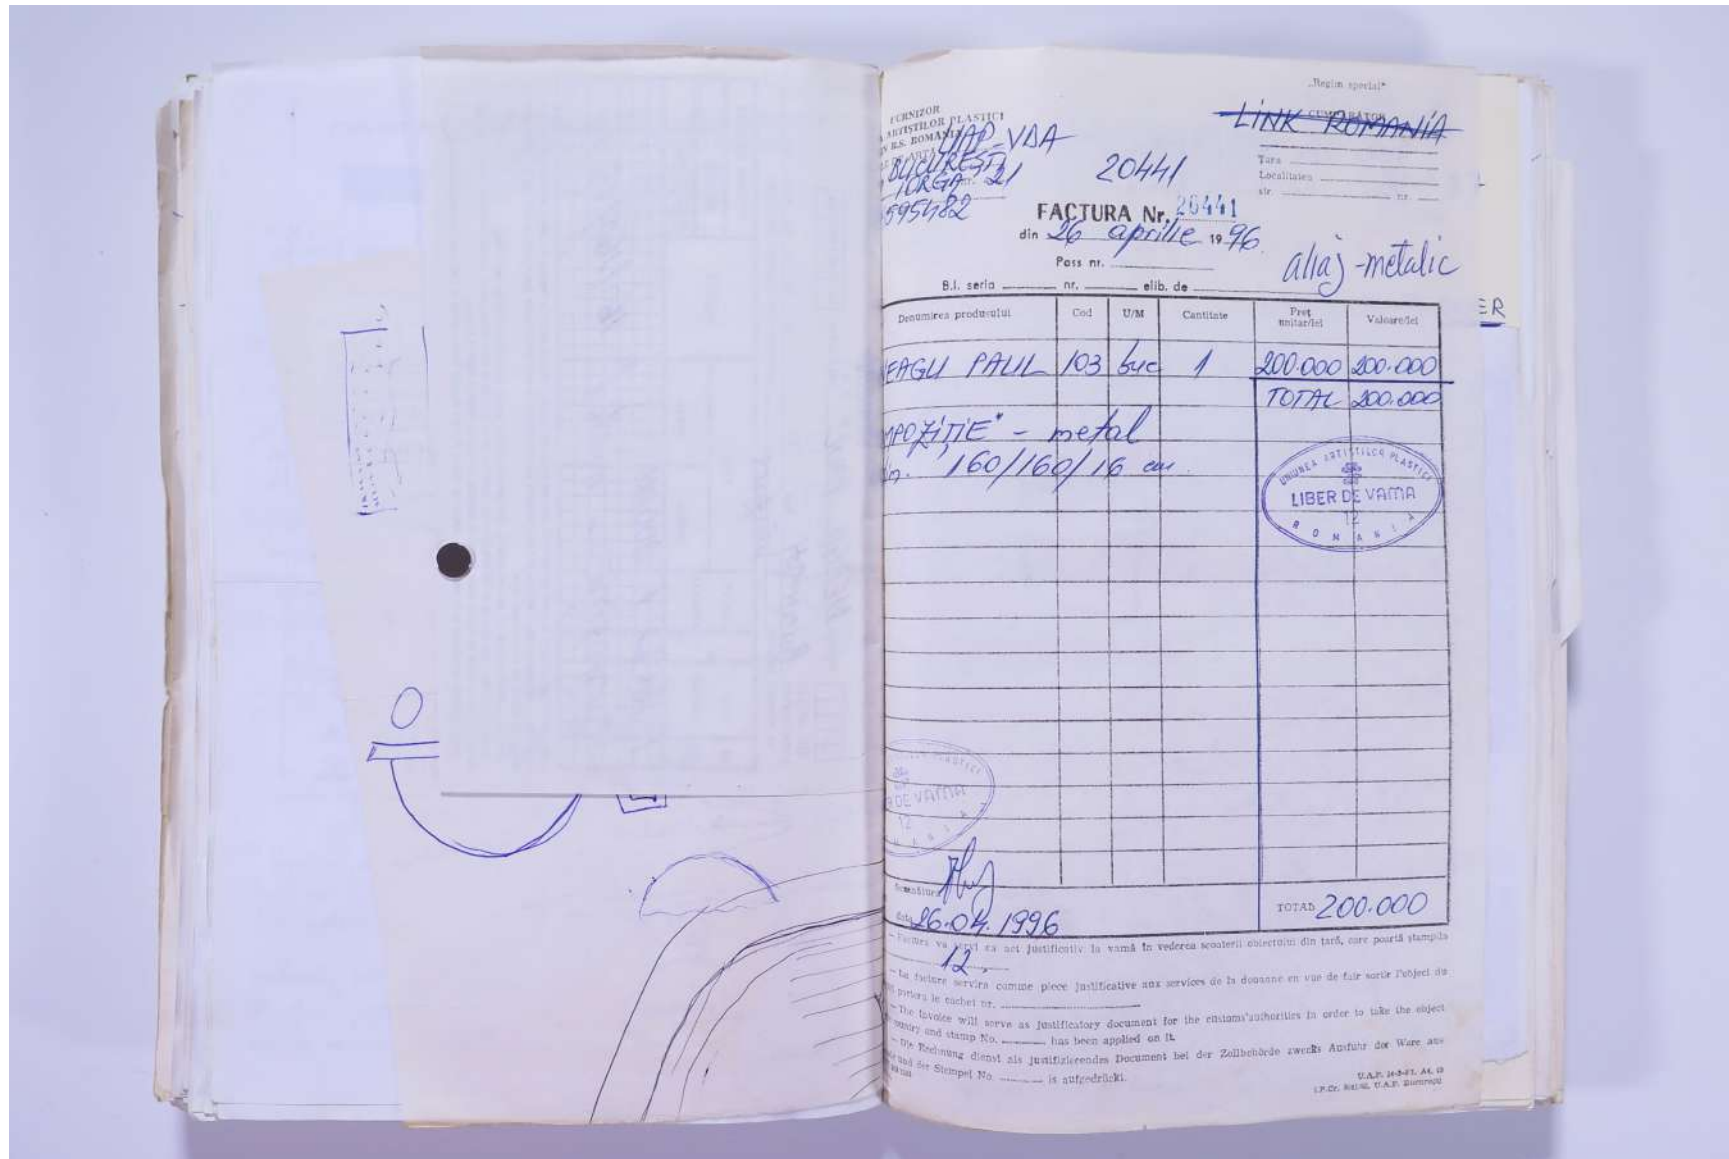 „Regim special"
FURNIZOR
ARTIȘTILOR PLASTICI
R.S. ROMANIA
UAP-VDA
BUCUREȘTI
IORGA nr. 21
595482
CUMPARATOR
LINK ROMANÍA
Țara
Localitatea
str. nr.
20441
FACTURA Nr. 20441
din 26 aprilie 1996.
Pass nr.
aliaj-metalic
B.I. seria nr. elib. de
ER
Denumirea produsului Cod U/M Cantitate Preț unitar/lei Valoare/lei
EAGU PAUL 103 buc 1 200.000 200.000
TOTAL 200.000
MPOZIȚIE" - metal
160/160/16 cm.
UNIUNEA ARTIȘTILOR PLASTICI
LIBER DE VAMA
12
ROMANIA
PLASTICI
DE VAMA
12
Semnătura
data 26.04.1996
TOTAL 200.000
— Factura va servi ca act justificativ la vamă în vederea scoaterii obiectului din țară, care poartă ștampila
12.
— La facture servira comme piece justificative aux services de la douane en vue de fair sortir l'object du
portera le cachet nr.
— The Invoice will serve as justificatory document for the customs'authorities in order to take the object
country and stamp No. has been applied on it.
— Die Rechnung dienst als justifizierendes Document bei der Zollbehörde zwecks Ausfuhr der Ware aus
und der Stempel No. is aufgedrückt.
U.A.P.
U.A.P. București